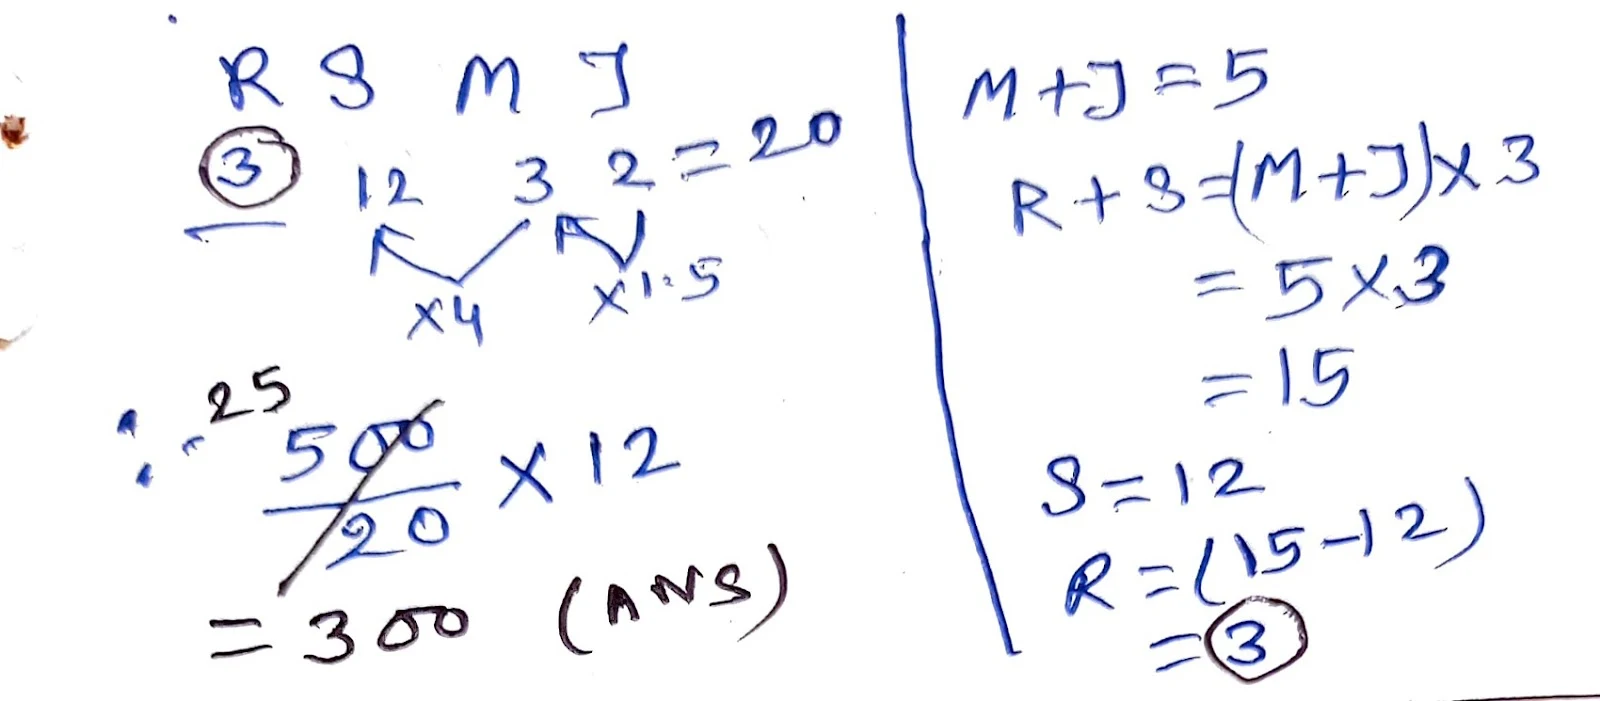 R S M J
3 12 3 2 = 20
×4 ×1.5
25
∴ 500/20 × 12
= 300 (ANS)
M+J=5
R+S=(M+J)×3
= 5×3
= 15
S=12
R=(15-12)
= 3